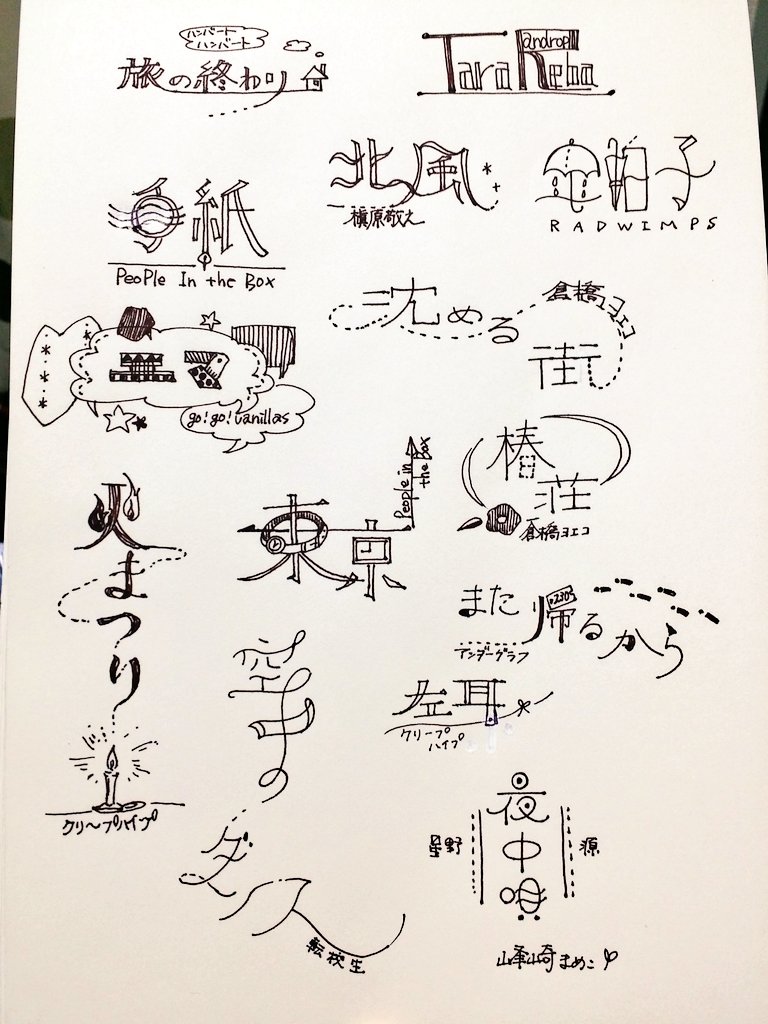 ハンバート
ハンバート
旅の終わり
androp
Tara Reba
手紙
PeoPle In the Box
北風
槇原敬之
雨と帽子
RADWIMPS
go!go!vanillas
沈める
街
倉橋ヨエコ
椿
荘
倉橋ヨエコ
東京
People in
the Box
火まつり
クリープハイプ
また帰るから
アンダーグラフ
左耳
クリープ
ハイプ
空中の
ダンス
転校生
夜中唄
星野
源